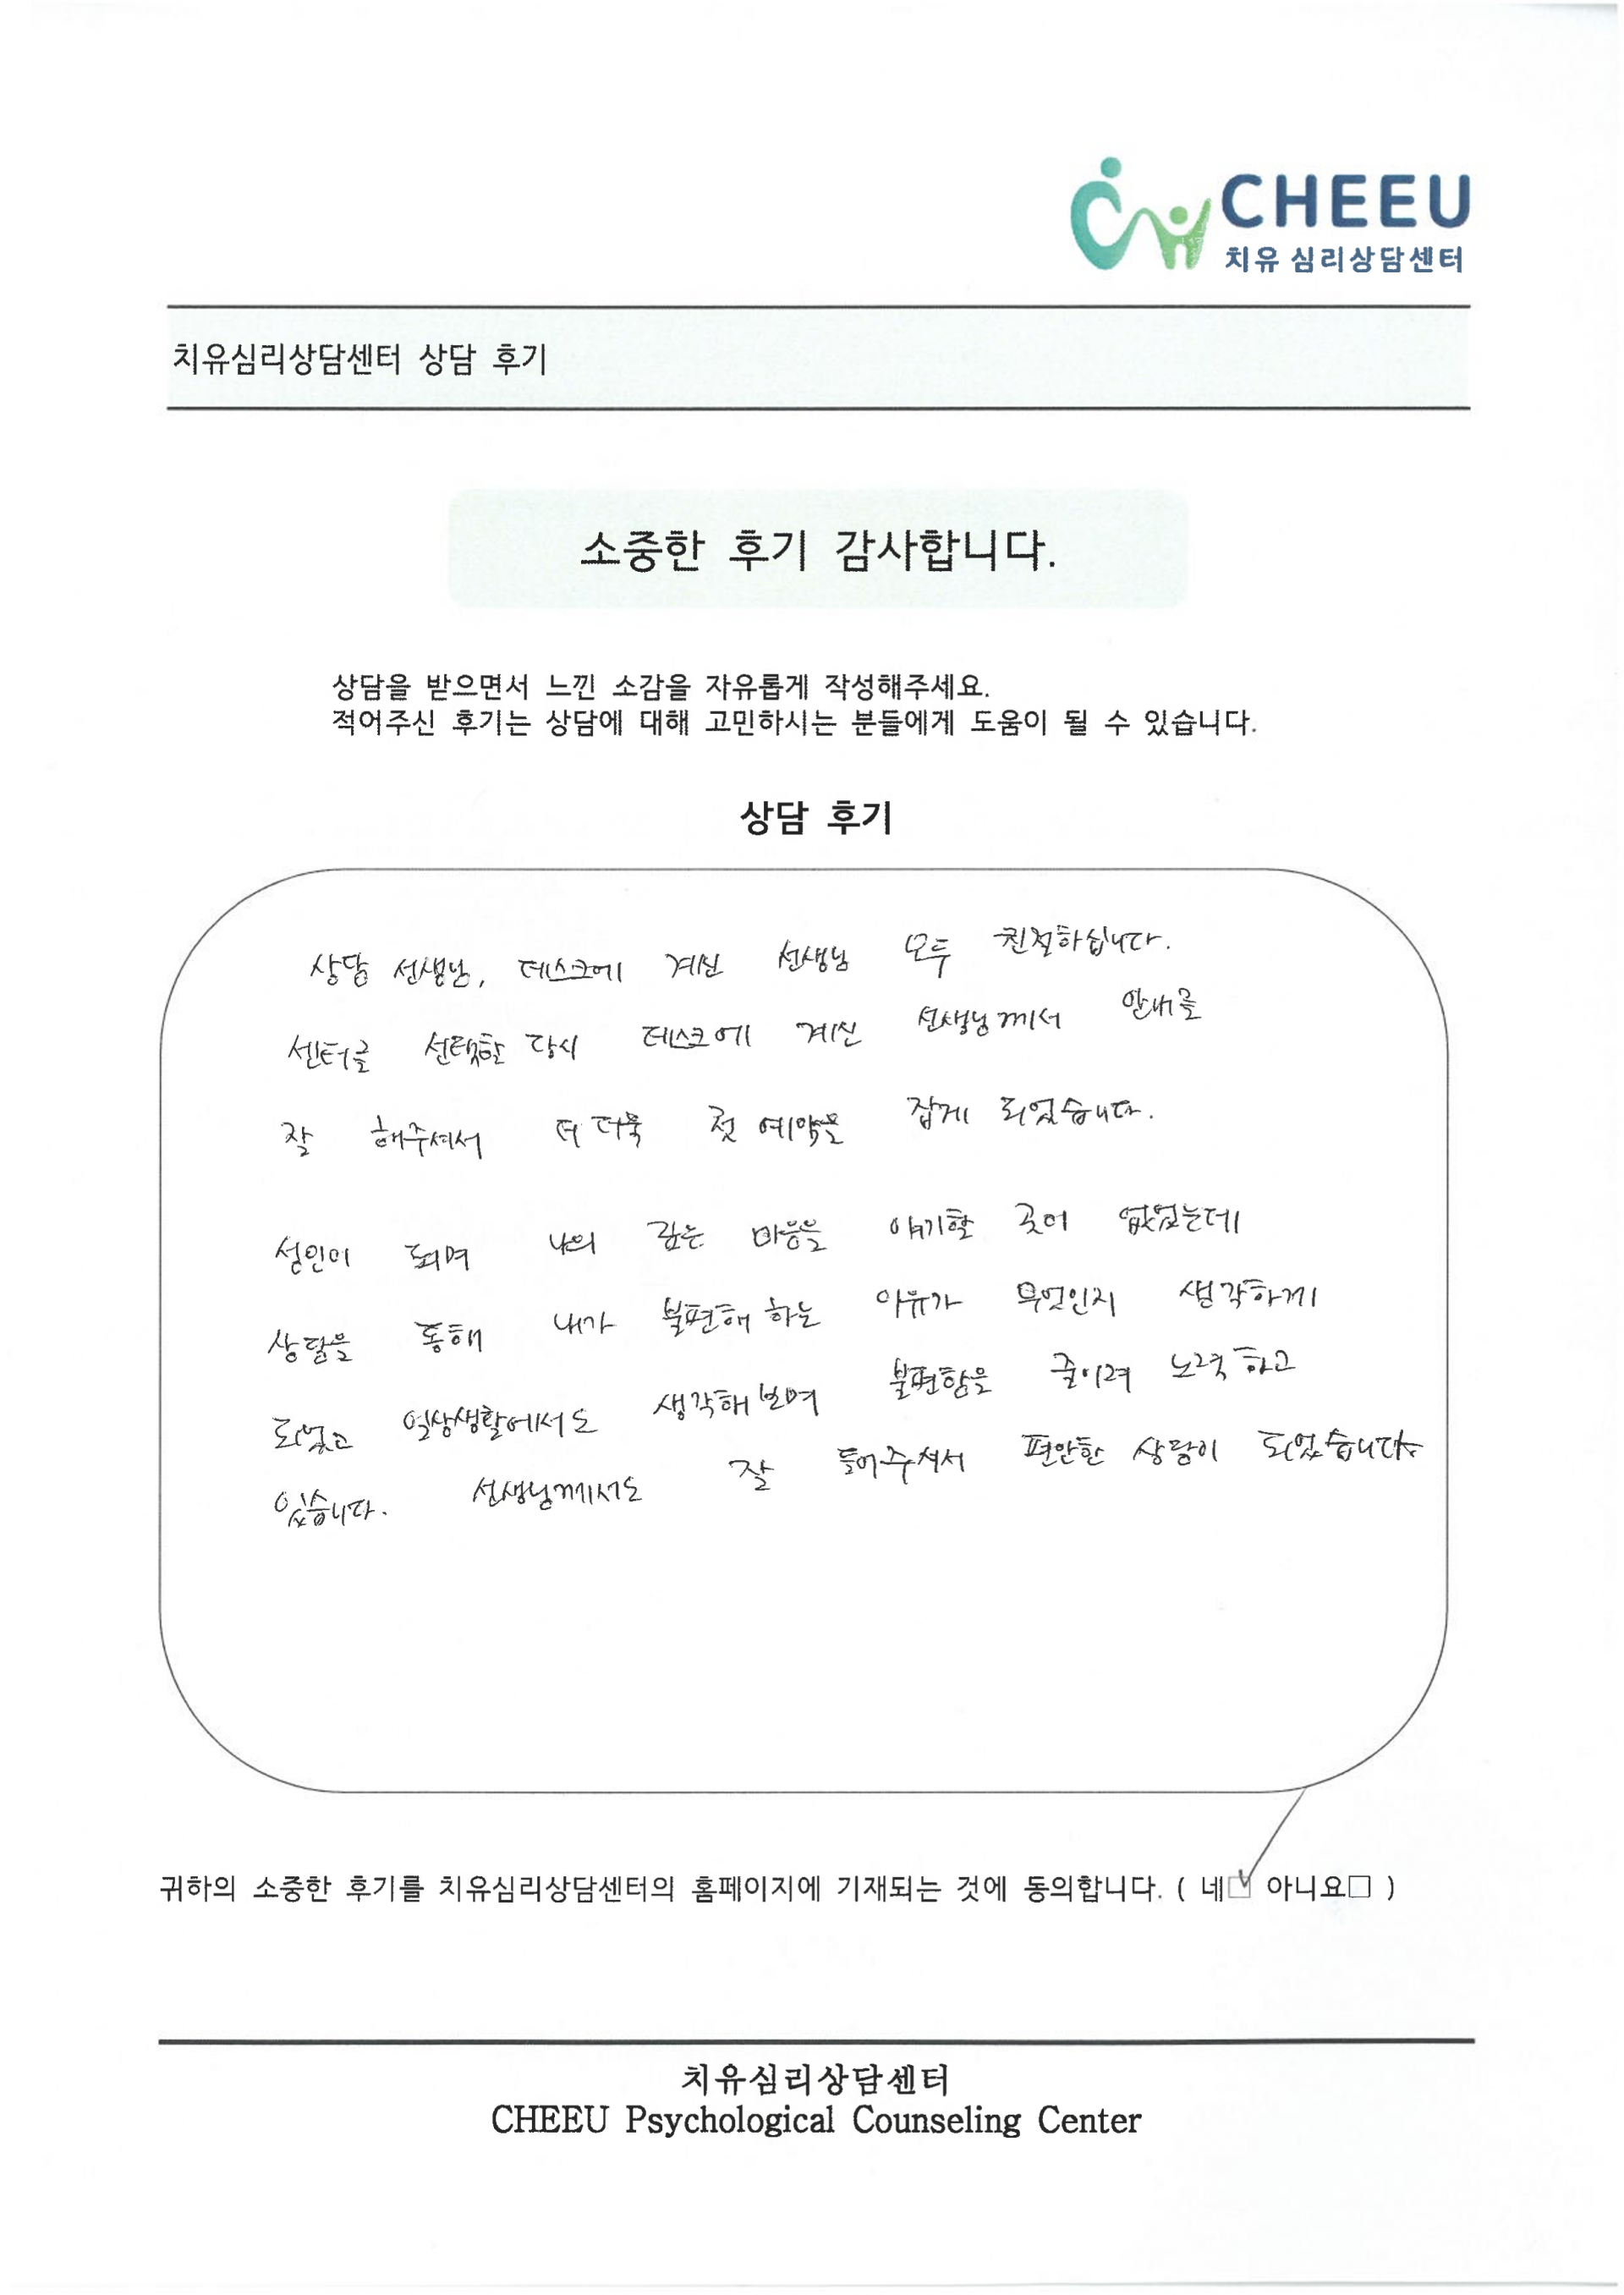 CHEEU
치유 심리상담센터
치유심리상담센터 상담 후기
소중한 후기 감사합니다.
상담을 받으면서 느낀 소감을 자유롭게 작성해주세요.
적어주신 후기는 상담에 대해 고민하시는 분들에게 도움이 될 수 있습니다.
상담 후기
상담 선생님, 데스크에 계신 선생님 모두 친절하십니다.
센터를 선택한 당시 데스크에 계신 선생님께서 안내를
잘 해주셔서 더 더욱 첫 예약을 잡게 되었습니다.
성인이 되며 나의 깊은 마음을 얘기할 곳이 없었는데
상담을 통해 내가 불편해 하는 이유가 무엇인지 생각하게
되었고 일상생활에서도 생각해보며 불편함을 줄이려 노력하고
있습니다. 선생님께서도 잘 들어주셔서 편안한 상담이 되었습니다.
귀하의 소중한 후기를 치유심리상담센터의 홈페이지에 기재되는 것에 동의합니다. ( 네☑ 아니요□ )
치유심리상담센터
CHEEU Psychological Counseling Center